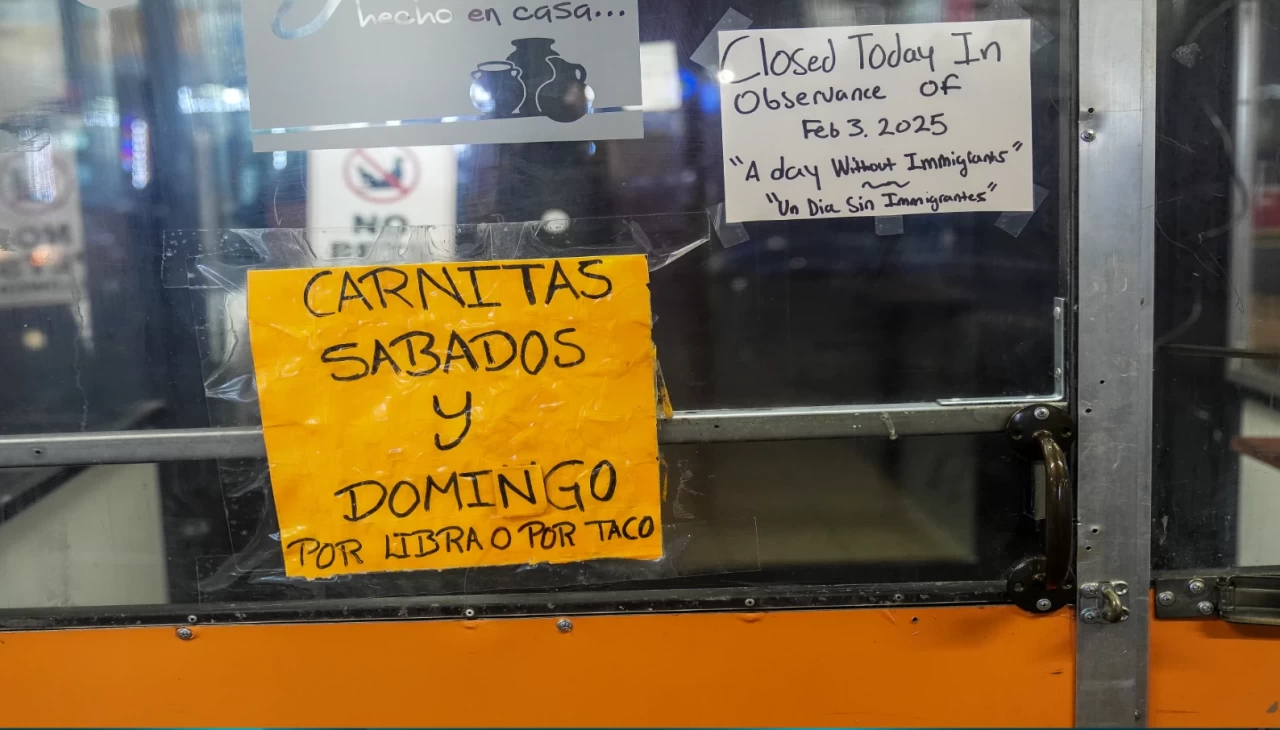 hecho en casa...
Closed Today In
Observance of
Feb 3. 2025
"A day Without Immigrants"
"Un Dia Sin Inmigrantes"
NO
CARNITAS
SABADOS
y
DOMINGO
POR LIBRA O POR TACO